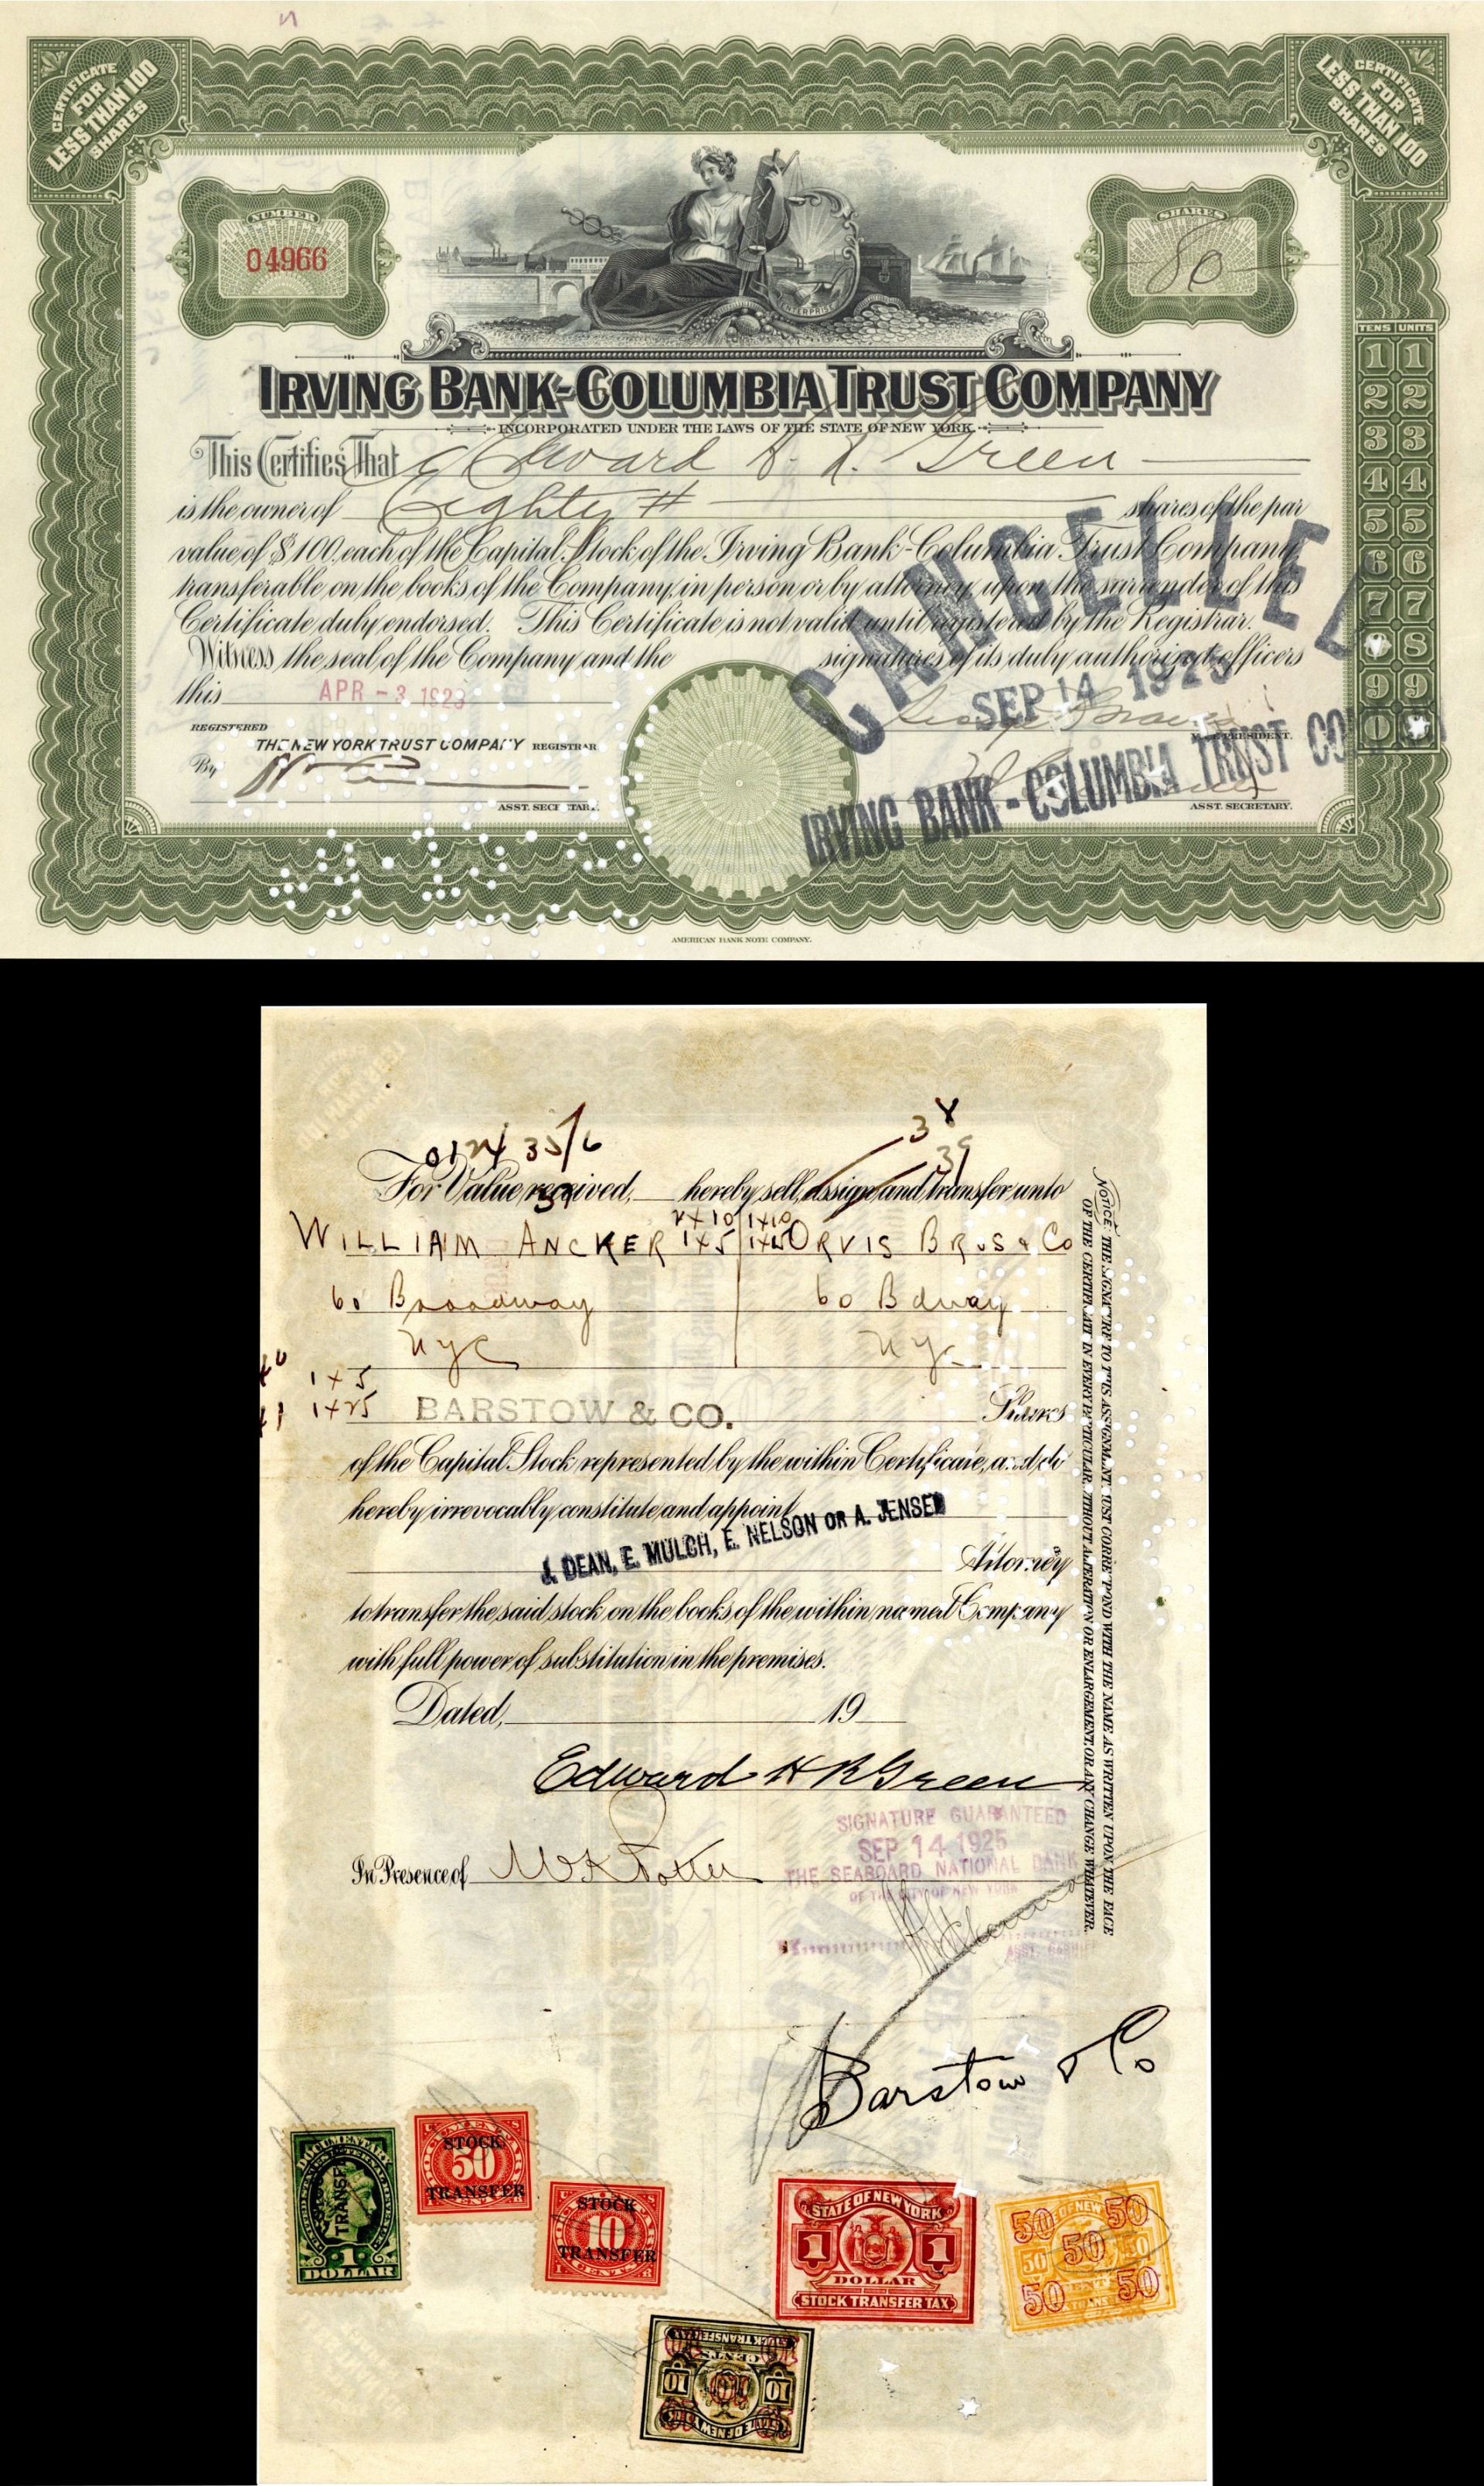 CERTIFICATE FOR LESS THAN 100 SHARES
CERTIFICATE FOR LESS THAN 100 SHARES
NUMBER
04966
SHARES
80
ENTERPRISE
IRVING BANK-COLUMBIA TRUST COMPANY
INCORPORATED UNDER THE LAWS OF THE STATE OF NEW YORK.
This Certifies That Edward H. R. Green
is the owner of Eighty # shares of the par
value of $100. each of the Capital Stock of the Irving Bank-Columbia Trust Company,
transferable on the books of the Company, in person or by attorney upon the surrender of this
Certificate duly endorsed. This Certificate is not valid until registered by the Registrar.
Witness the seal of the Company and the signatures of its duly authorized officers
this APR - 3 1923
CANCELLED
SEP 14 1925
IRVING BANK - COLUMBIA TRUST CO
REGISTERED
THE NEW YORK TRUST COMPANY REGISTRAR
By
ASST. SECRETARY.
VICE PRESIDENT.
ASST. SECRETARY.
TENS UNITS
1 1
2 2
3 3
4 4
5 5
6 6
7 7
8 8
9 9
0 0
AMERICAN BANK NOTE COMPANY.
35/6
38
39
For Value received, hereby sell, assign and transfer unto
37
2x10 1x10
WILLIAM ANCKER 1x5 ORVIS BROS & Co
60 Broadway 60 Bdway
NYC NYC
40 1x5
41 1x25 BARSTOW & CO. Shares
of the Capital Stock represented by the within Certificate, and do
hereby irrevocably constitute and appoint
J. DEAN, E. MULCH, E. NELSON OR A. JENSEN
Attorney
to transfer the said stock on the books of the within named Company
with full power of substitution in the premises.
Dated, 19
Edward H R Green
SIGNATURE GUARANTEED
SEP 14 1925
THE SEABOARD NATIONAL BANK
OF THE CITY OF NEW YORK
In Presence of W K Potter
ASST. CASHIER
Barstow & Co
NOTICE: THE SIGNATURE TO THIS ASSIGNMENT MUST CORRESPOND WITH THE NAME AS WRITTEN UPON THE FACE
OF THE CERTIFICATE IN EVERY PARTICULAR WITHOUT ALTERATION OR ENLARGEMENT, OR ANY CHANGE WHATEVER.
DOCUMENTARY
STOCK TRANSFER
1
DOLLAR
STOCK
50
TRANSFER
CENTS
STOCK
10
TRANSFER
CENTS
STATE OF NEW YORK
1 1
DOLLAR
STOCK TRANSFER TAX
50 OF NEW 50
50 50 50
50 50
STOCK TRANSFER TAX
CENTS
10 10 10
STATE OF NEW YORK